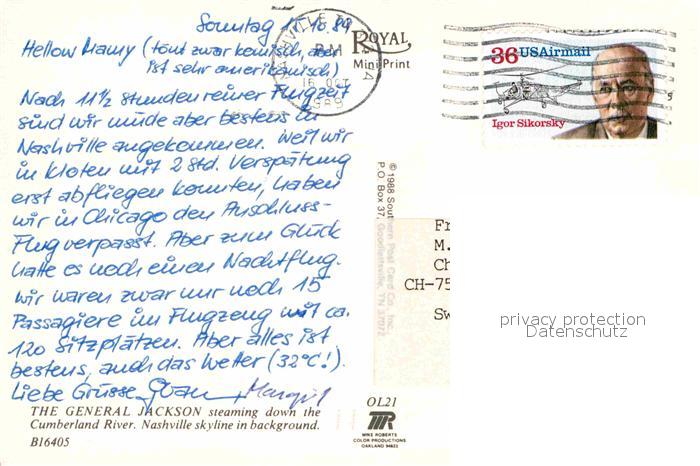 Sonntag 15.10.89
Hellow Mamy (tönt zwar komisch, aber
ist sehr amerikanisch)
Nach 11½ stunden reiner Flugzeit
sind wir müde aber bestens in
Nashville angekommen. Weil wir
in Kloten mit 2 Std. Verspätung
erst abfliegen konnten, haben
wir in Chicago den Anschluss-
Flug verpasst. Aber zum Glück
hatte es noch einen Nachtflug.
wir waren zwar nur noch 15
Passagiere im Flugzeug mit ca.
120 Sitzplätzen. Aber alles ist
bestens, auch das Wetter (32°C!).
Liebe Grüsse, Margrit
THE GENERAL JACKSON steaming down the
Cumberland River. Nashville skyline in background.
B16405
ROYAL
Mini Print
PM
16 OCT
1989
36 USAirmail
Igor Sikorsky
© 1988 Southern Post Card Co. Inc.
P.O. Box 37, Goodlettsville, TN 37072
Fr
M.
Ch
CH-75
Sw
privacy protection
Datenschutz
OL21
MR
MIKE ROBERTS
COLOR PRODUCTIONS
OAKLAND 94623